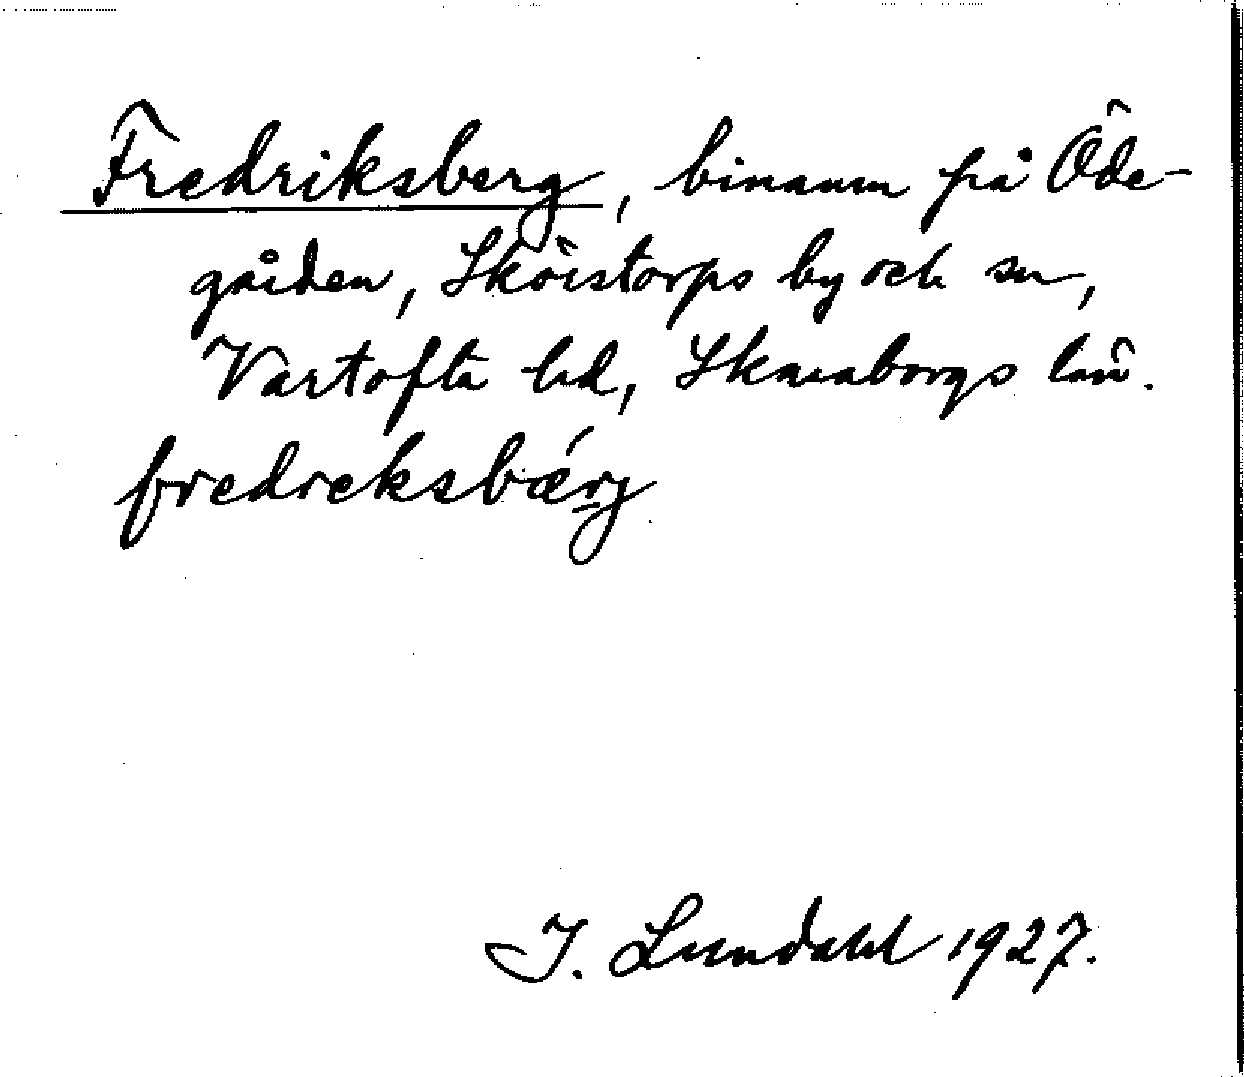 Fredriksberg, binamn på Öde-
gården, Skörstorps by och sn,
Vartofta hd, Skaraborgs län.
fredreksbærj
I. Lundahl 1927.